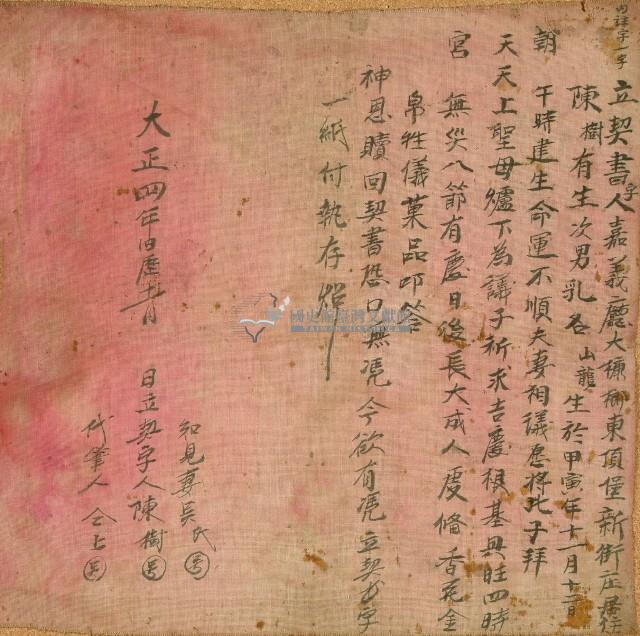 內註字一字
立契書字人嘉義廳大糠榔東頂堡新街庄居住
陳樹有生次男乳名山龍生於甲寅年十一月十二日
午時建生命運不順夫妻相議愿將此子拜
朝
天天上聖母爐下為講子祈求吉慶根基興旺四時
無災八節有慶日後長大成人虔備香花金
宮
帛牲儀菓品叩答
神恩贖回契書恐口無憑今欲有憑立契書字
一紙付執存照
大正四年旧曆 月 日立契字人陳樹
知見妻吳氏
代筆人仝上
國史館臺灣文獻館
TAIWAN HISTORICA